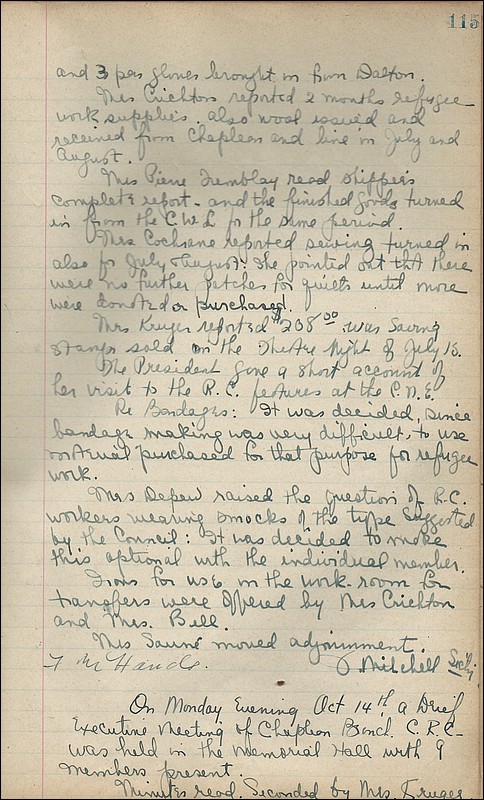 115
and 3 prs gloves brought in from Dalton.
Mrs Crichton reported 2 months refugee
work supplies. also wool issued and
received from Chapleau and line in July and
August.
Mrs Pierre Tremblay read shippers
complete report - and the finished goods turned
in from the C.W.L for the same period.
Mrs Cochrane reported sewing turned in
also for July & August: She pointed out that there
were no further patches for quilts until more
were donated or purchased.
Mrs Kruger reported $208.00 was Saving
Stamps sold on the Theatre Night of July 15.
The President gave a short account of
her visit to the R.C. features at the C.N.E.
Re Bandages: It was decided, since
bandage making was very difficult, to use
material purchased for that purpose for refugee
work.
Mrs Depew raised the question of R.C.
workers wearing smocks of the type suggested
by the Council: It was decided to make
this optional with the individual member.
Irons for use in the work room for
transfers were offered by Mrs Crichton
and Mrs. Bell.
Mrs moved adjournment.
Mitchell Sec'ty.
On Monday Evening Oct 14th a Brief
Executive Meeting of Chapleau Branch C.R.C.
was held in the Memorial Hall with 9
members present.
Minutes read. Seconded by Mrs. Kruger